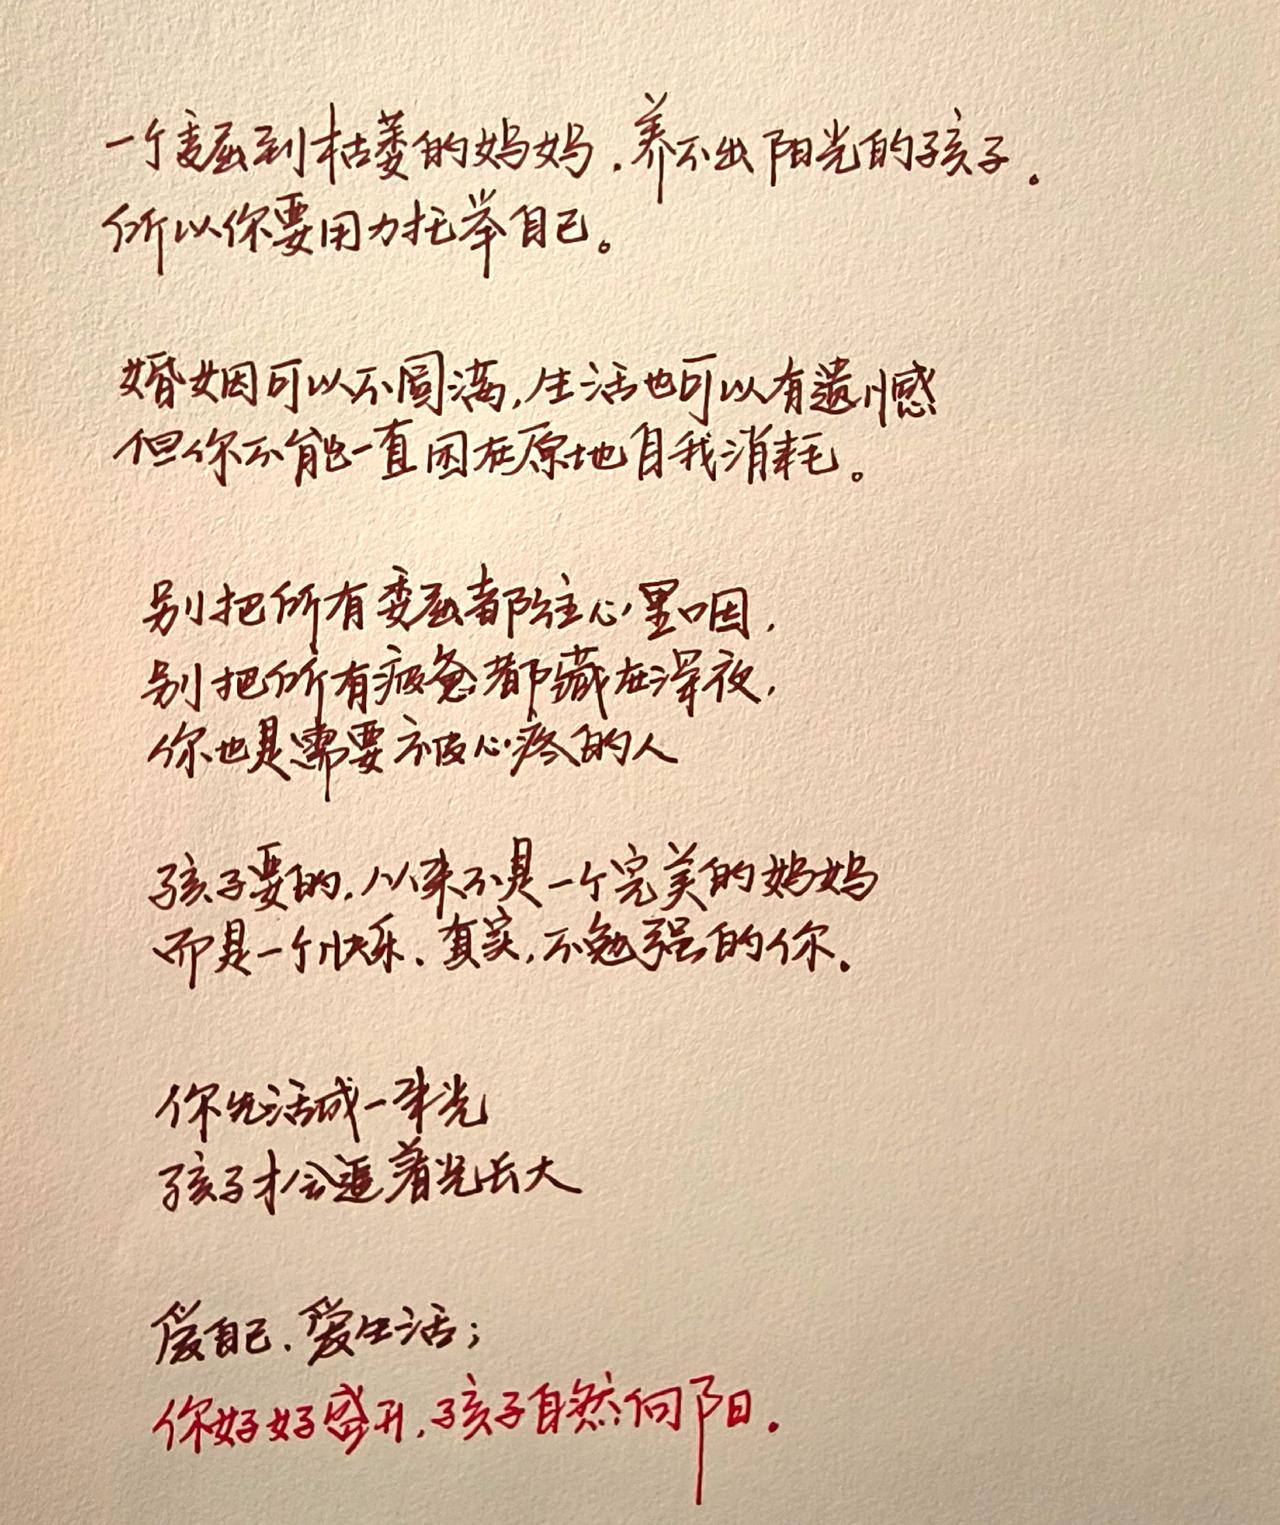 一个委屈到枯萎的妈妈，养不出阳光的孩子。
所以你要用力托举自己。
婚姻可以不圆满，生活也可以有遗憾
但你不能一直困在原地自我消耗。
别把所有委屈都往心里咽，
别把所有疲惫都藏在深夜，
你也是需要被心疼的人
孩子要的，从来不是一个完美的妈妈
而是一个快乐、真实，不勉强的你。
你先活成一束光
孩子才会追着光长大
爱自己、爱生活；
你好好盛开，孩子自然向阳。